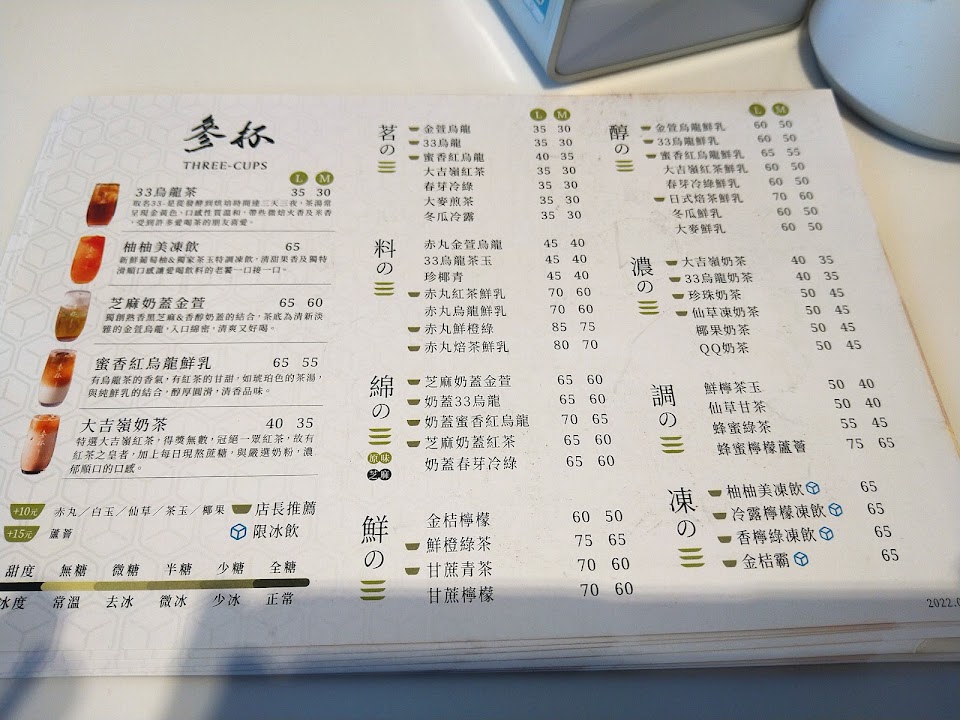 參杯
THREE-CUPS
L M
33烏龍茶 35 30
取名33-是從發酵到烘焙時間達三天三夜、茶湯常
呈現金黃色,口感性質溫和,帶些微焙火香及米香
,受到許多愛喝茶的朋友喜愛。
柚柚美凍飲 65
新鮮葡萄柚&獨家茶玉特調凍飲,清甜果香及獨特
滑順口感讓愛喝飲料的老饕一口接一口。
芝麻奶蓋金萱 65 60
獨創熟香黑芝麻&香醇奶蓋的結合,茶底為清新淡
雅的金萱烏龍,入口綿密,清爽又好喝。
蜜香紅烏龍鮮乳 65 55
有烏龍茶的香氣,有紅茶的甘甜,如琥珀色的茶湯,
與純鮮乳的結合,醇厚圓滑,清香品味。
大吉嶺奶茶 40 35
特選大吉嶺紅茶,得獎無數,冠絕一眾紅茶,故有
紅茶之皇者,加上每日現熬蔗糖,與嚴選奶粉,濃
郁順口的口感。
+10元 赤丸/白玉/仙草/茶玉/椰果 店長推薦
+15元 蘆薈 限冰飲
甜度 無糖 微糖 半糖 少糖 全糖
冰度 常溫 去冰 微冰 少冰 正常
茗の
L M
金萱烏龍 35 30
33烏龍 35 30
蜜香紅烏龍 40 35
大吉嶺紅茶 35 30
春芽冷綠 35 30
大麥煎茶 35 30
冬瓜冷露 35 30
料の
赤丸金萱烏龍 45 40
33烏龍茶玉 45 40
珍椰青 45 40
赤丸紅茶鮮乳 70 60
赤丸烏龍鮮乳 70 60
赤丸鮮橙綠 85 75
赤丸焙茶鮮乳 80 70
綿の
原味
芝麻
芝麻奶蓋金萱 65 60
奶蓋33烏龍 65 60
奶蓋蜜香紅烏龍 70 65
芝麻奶蓋紅茶 65 60
奶蓋春芽冷綠 65 60
鮮の
金桔檸檬 60 50
鮮橙綠茶 75 65
甘蔗青茶 70 60
甘蔗檸檬 70 60
醇の
L M
金萱烏龍鮮乳 60 50
33烏龍鮮乳 60 50
蜜香紅烏龍鮮乳 65 55
大吉嶺紅茶鮮乳 60 50
春芽冷綠鮮乳 60 50
日式焙茶鮮乳 70 60
冬瓜鮮乳 60 50
大麥鮮乳 60 50
濃の
大吉嶺奶茶 40 35
33烏龍奶茶 40 35
珍珠奶茶 50 45
仙草凍奶茶 50 45
椰果奶茶 50 45
QQ奶茶 50 45
調の
鮮檸茶玉 50 40
仙草甘茶 50 40
蜂蜜綠茶 55 45
蜂蜜檸檬蘆薈 75 65
凍の
柚柚美凍飲 65
冷露檸檬凍飲 65
香檸綠凍飲 65
金桔霸 65
2022.0